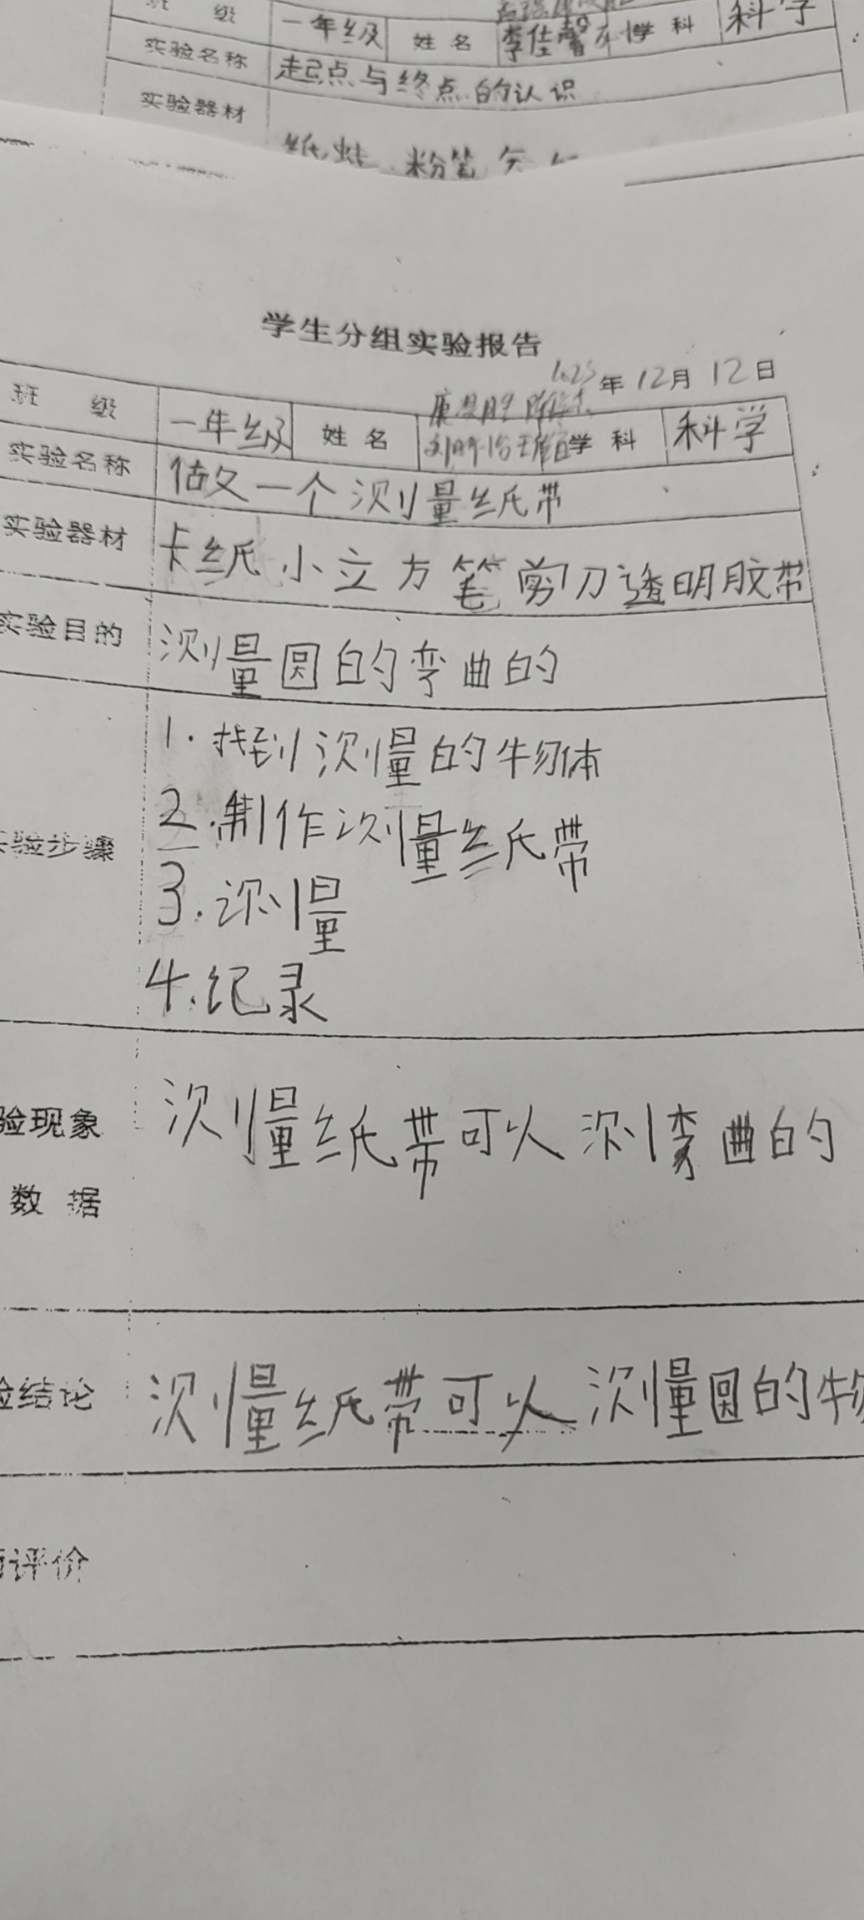 班 级 一年级 姓 名 李佳馨 学 科 科学
实验名称 起点与终点的认识
实验器材 纸蛙 粉笔
学生分组实验报告
年12月12日
班 级 一年级 姓 名 学 科 科学
实验名称 做一个测量纸带
实验器材 卡纸 小立方 笔 剪刀 透明胶带
实验目的 测量圆的弯曲的
1.找到测量的物体
实验步骤 2.制作测量纸带
3.测量
4.纪录
验现象 测量纸带可以测弯曲的
数 据
验结论 测量纸带可以测量圆的物
评价